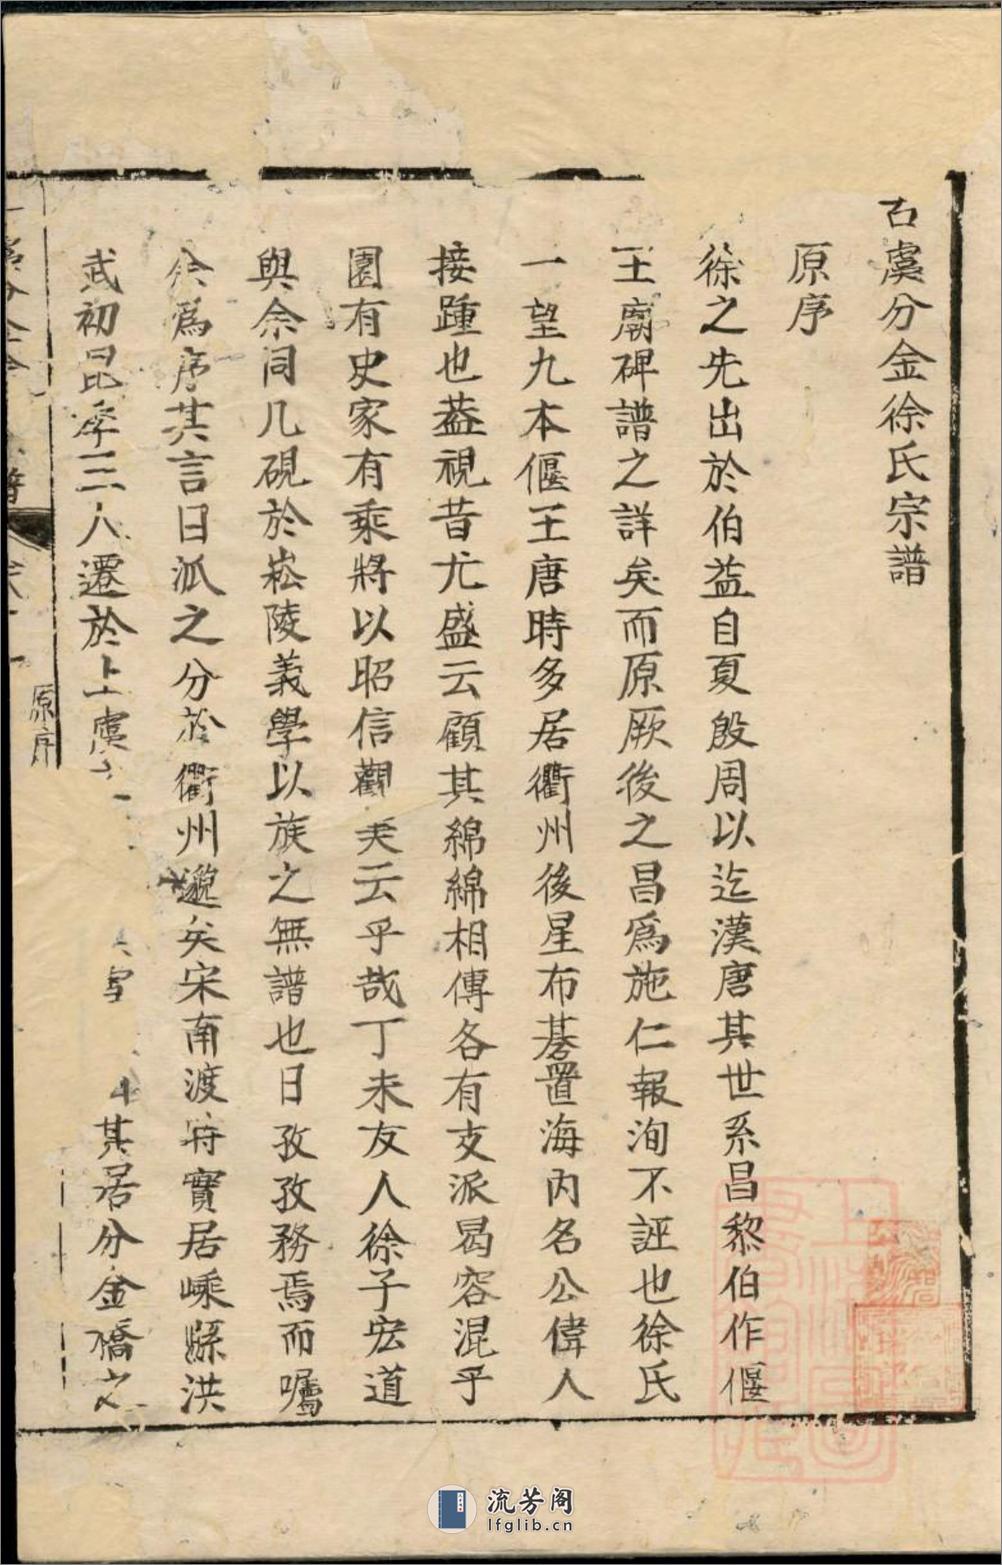 古虞分金徐氏宗譜
原序
徐之先出於伯益自夏殷周以迄漢唐其世系昌黎伯作偃
王廟碑譜之詳矣而原厥後之昌爲施仁報洵不誣也徐氏
一望九本偃王唐時多居衢州後星布碁置海內名公偉人
接踵也葢視昔尤盛云顧其綿綿相傳各有支派曷容混乎
國有史家有乘將以昭信觀美云乎哉丁未友人徐子宏道
與余同几硯於崧陵義學以族之無譜也日孜孜務焉而囑
余爲序其言曰派之分於衢州邈矣宋南渡時實居嵊縣洪
武初昆季三人遷於上虞
其居分金橋之
原序
流芳阁
lfglib.cn